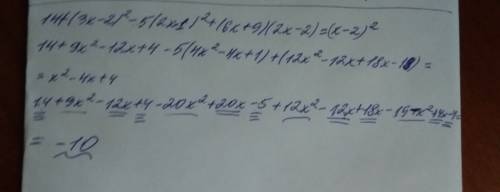 14+(3x-2)²-5(2x-1)²+(6x+9)(2x-2)=(x-2)²
14+9x²-12x+4-5(4x²-4x+1)+(12x²-12x+18x-18)=
=x²-4x+4
14+9x²-12x+4-20x²+20x-5+12x²-12x+18x-
=-10